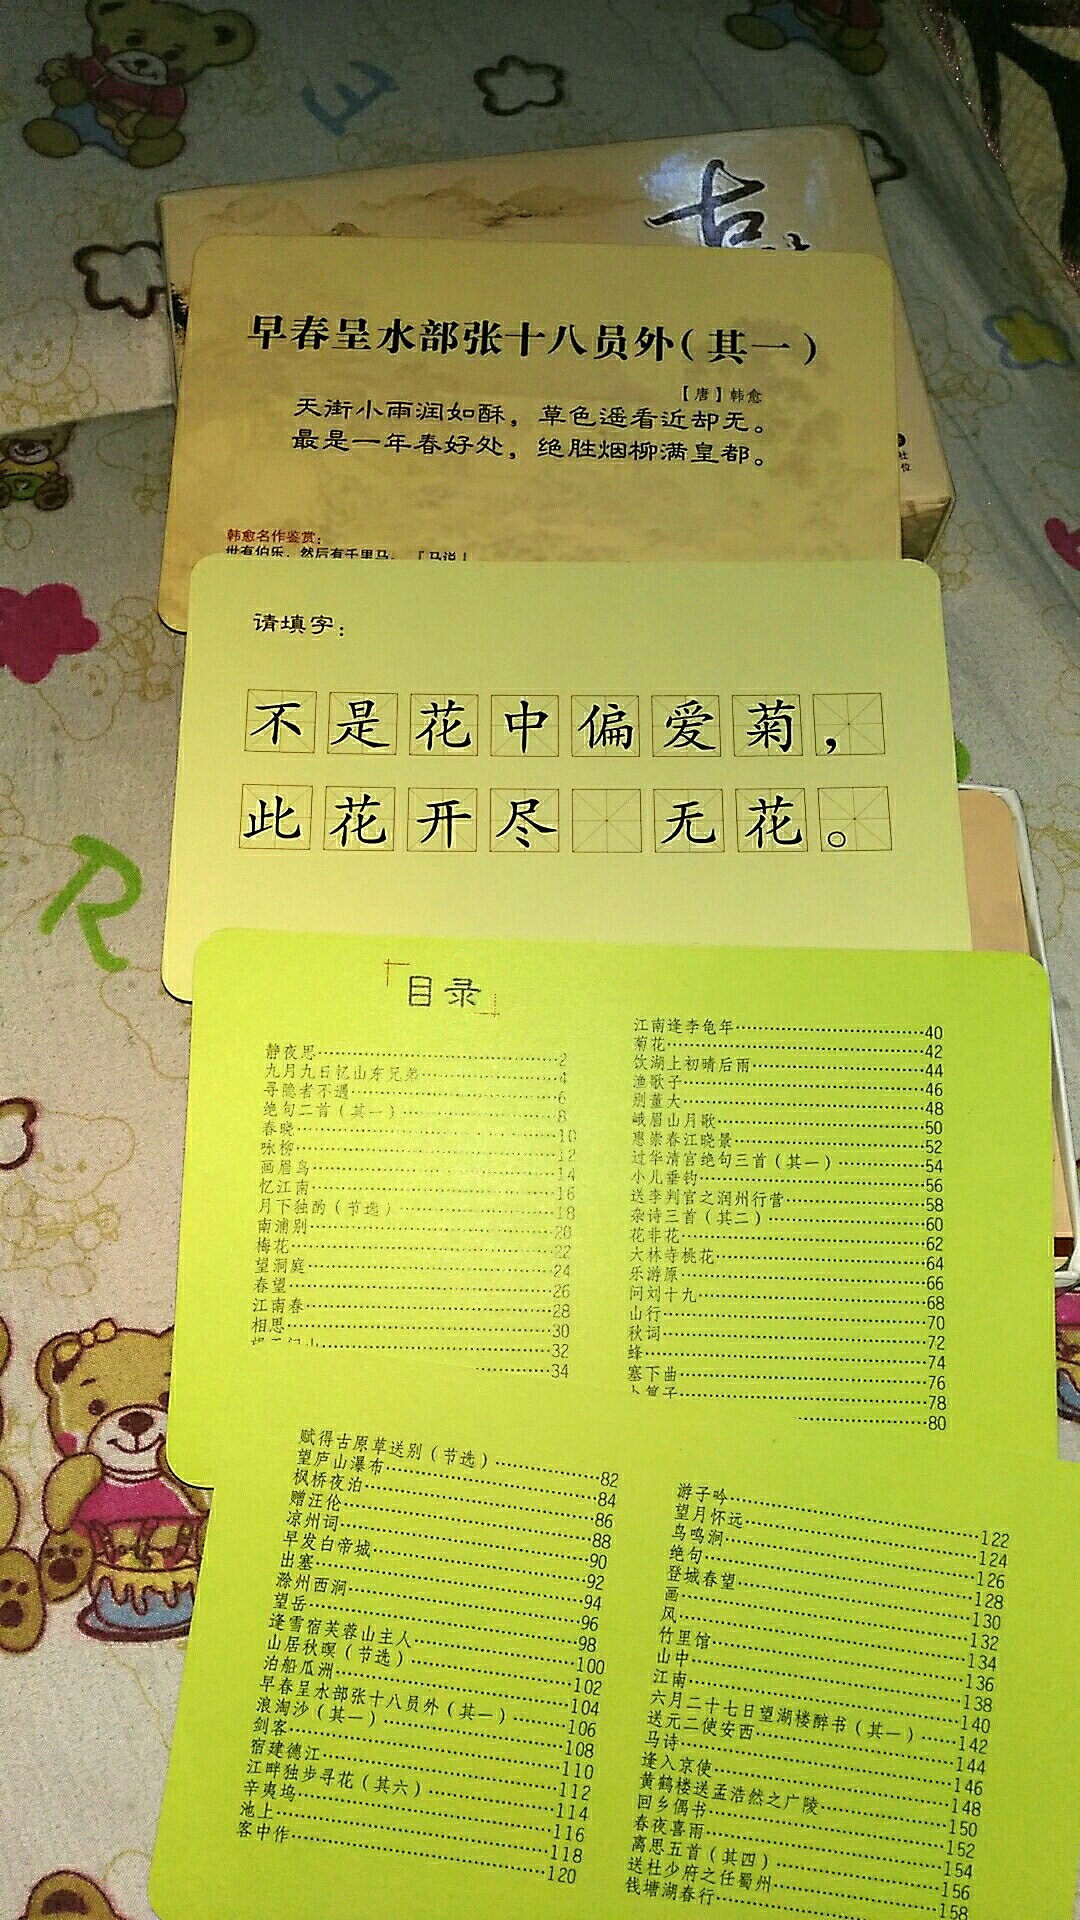 古
早春呈水部张十八员外(其一)
【唐】韩愈
天街小雨润如酥，草色遥看近却无。
最是一年春好处，绝胜烟柳满皇都。
韩愈名作鉴赏：
世有伯乐，然后有千里马。「马说」
社
位
请填字：
不是花中偏爱菊，
此花开尽 无花。
目录
静夜思 2
九月九日忆山东兄弟 4
寻隐者不遇 6
绝句二首(其一) 8
春晓 10
咏柳 12
画眉鸟 14
忆江南 16
月下独酌(节选) 18
南浦别 20
梅花 22
望洞庭 24
春望 26
江南春 28
相思 30
32
34
江南逢李龟年 40
菊花 42
饮湖上初晴后雨 44
渔歌子 46
别董大 48
峨眉山月歌 50
惠崇春江晓景 52
过华清宫绝句三首(其一) 54
小儿垂钓 56
送李判官之润州行营 58
杂诗三首(其二) 60
花非花 62
大林寺桃花 64
乐游原 66
问刘十九 68
山行 70
秋词 72
蜂 74
塞下曲 76
卜算子 78
80
赋得古原草送别(节选) 82
望庐山瀑布 84
枫桥夜泊 86
赠汪伦 88
凉州词 90
早发白帝城 92
出塞 94
滁州西涧 96
望岳 98
逢雪宿芙蓉山主人 100
山居秋暝(节选) 102
泊船瓜洲 104
早春呈水部张十八员外(其一) 106
浪淘沙(其一) 108
剑客 110
宿建德江 112
江畔独步寻花(其六) 114
辛夷坞 116
池上 118
客中作 120
游子吟 122
望月怀远 124
鸟鸣涧 126
绝句 128
登城春望 130
画 132
风 134
竹里馆 136
山中 138
江南 140
六月二十七日望湖楼醉书(其一) 142
送元二使安西 144
马诗 146
逢入京使 148
黄鹤楼送孟浩然之广陵 150
回乡偶书 152
春夜喜雨 154
离思五首(其四) 156
送杜少府之任蜀州 158
钱塘湖春行
E
R